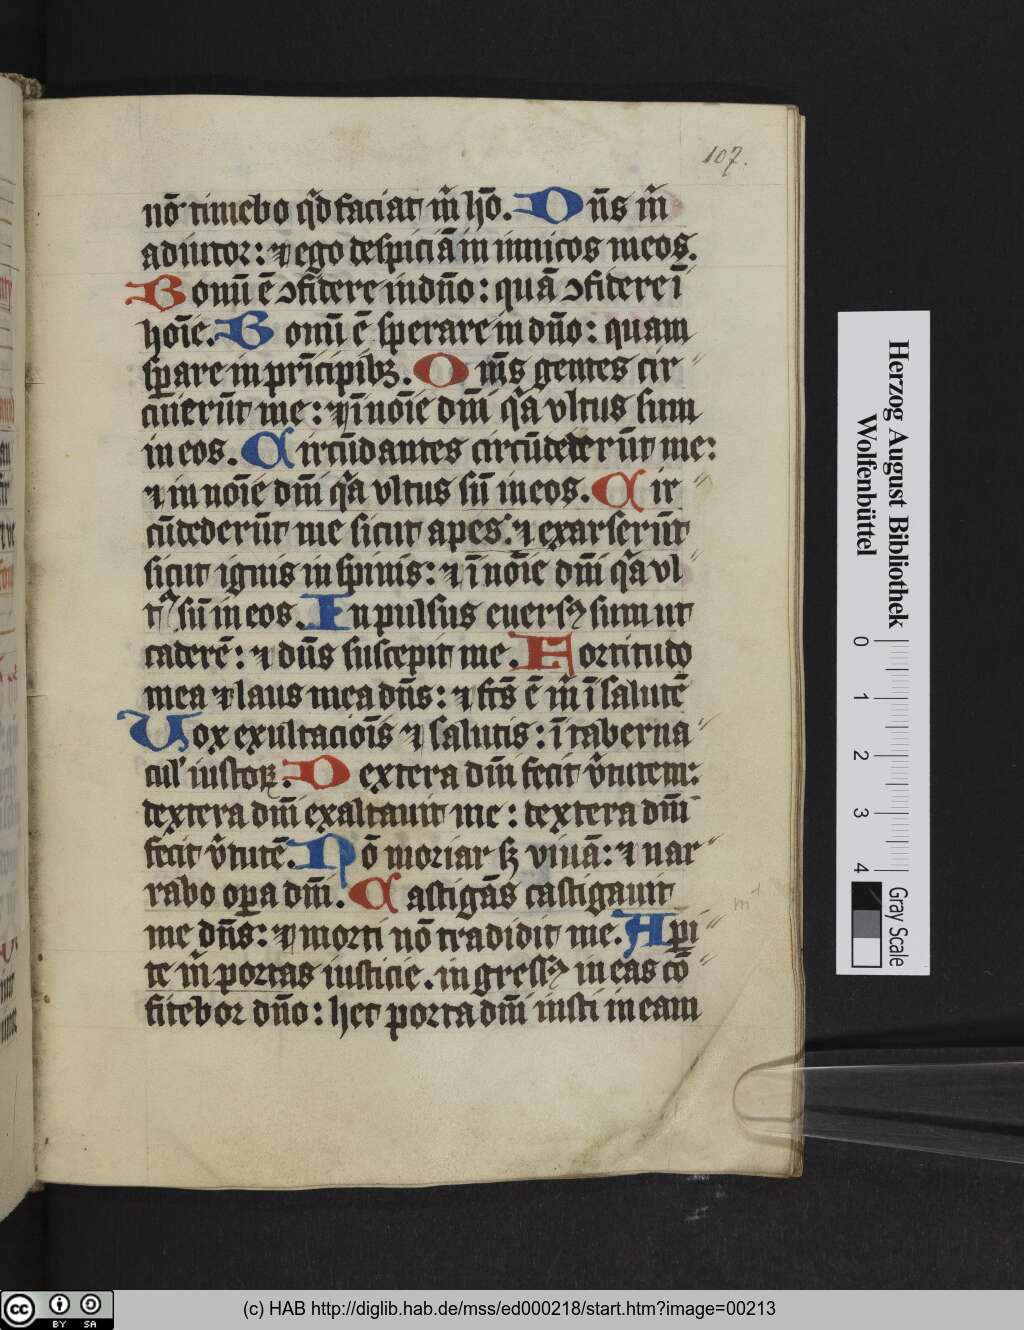 107.
nō timebo qͥd faciat m̄ hō. Dn̄s m̄
adiutor: ⁊ ego despiciā inimicos meos.
Bonū ē ↄfidere in dn̄o: quā ↄfidere ī
hoīe. Bonū ē sperare in dn̄o: quam
sꝑare in prīcipibꝫ. Om̄s gentes cir〃
cuierūt me: ⁊ ī noīe dn̄i qͣa vltus sum
in eos. Circūdantes circūdederūt me:
⁊ in noīe dn̄i qͣa vltus sū in eos. Cir〃
cūdederūt me sicut apes. ⁊ exarserūt
sicut ignis in spinis: ⁊ ī noīe dn̄i qͣa vl
tꝰ sū in eos. Inpulsus euersꝰ sum ut
caderē: ⁊ dn̄s suscepit me. Fortitudo
mea ⁊ laus mea dn̄s: ⁊ fcs̄ ē m̄ ī salutē
Vox exultacioīs ⁊ salutis: ī taberna〃
cul' iustoꝝ. Dextera dn̄i fecit v̄tutem:
dextera dn̄i exaltauit me: dextera dn̄i
fecit v̄tutē. Nō moriar sꝫ viuā: ⁊ nar〃
rabo oꝑa dn̄i. Castigās castigauit
me dn̄s: ⁊ morti nō tradidit me. Aꝑi〃
te m̄ portas iusticie. ingressꝰ in eas cō〃
fitebor dn̄o: hec porta dn̄i iusti in eam
Herzog August Bibliothek
Wolfenbüttel
0 1 2 3 4
Gray Scale
cc BY SA
(c) HAB http://diglib.hab.de/mss/ed000218/start.htm?image=00213